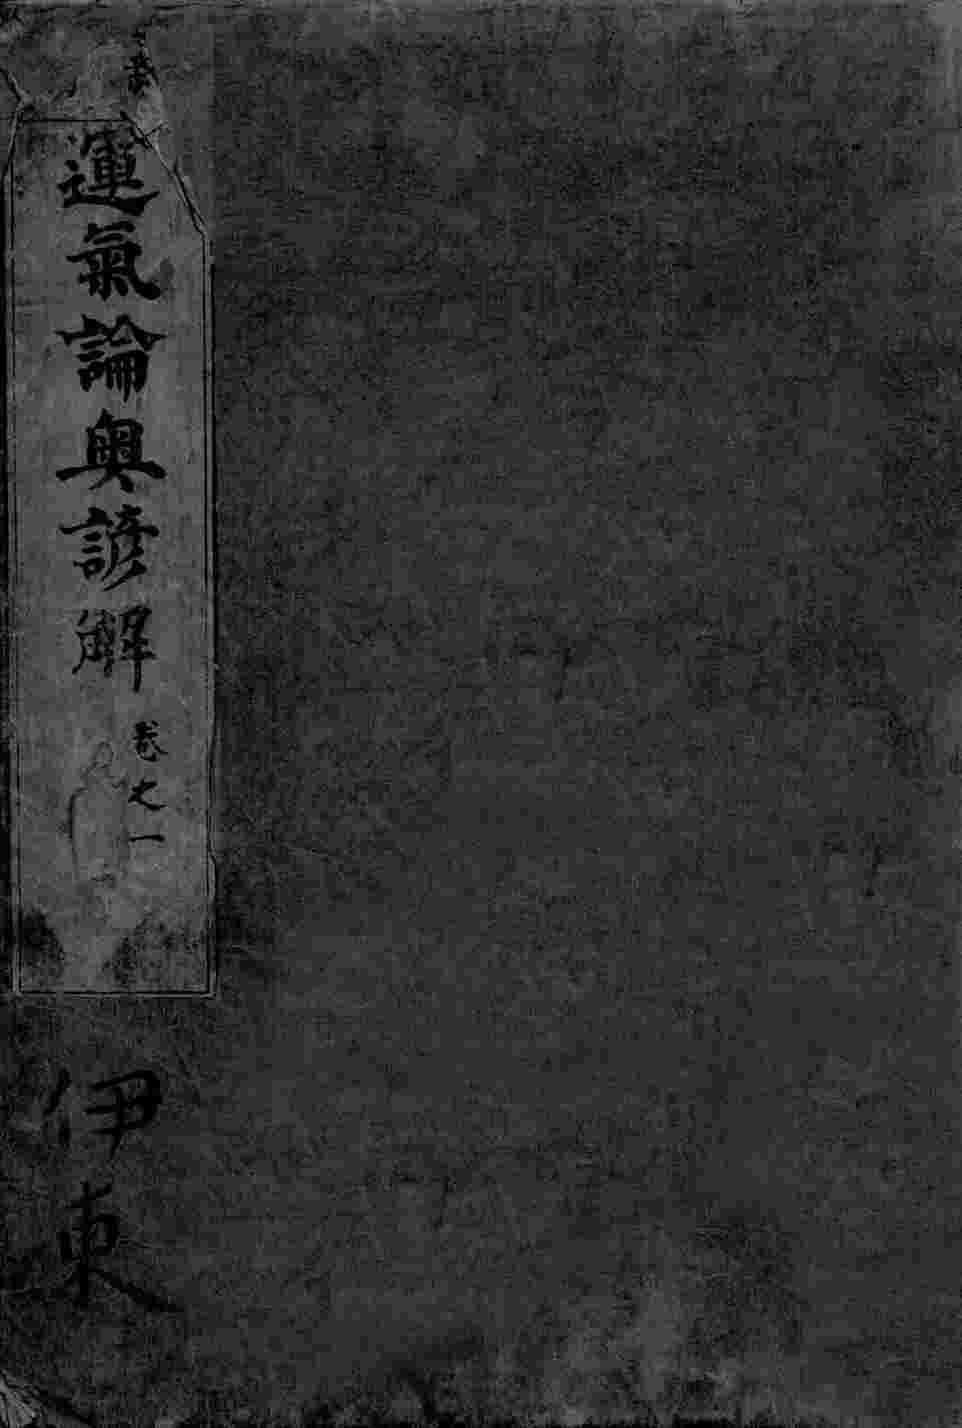 運氣論奧諺解
卷之一
伊東